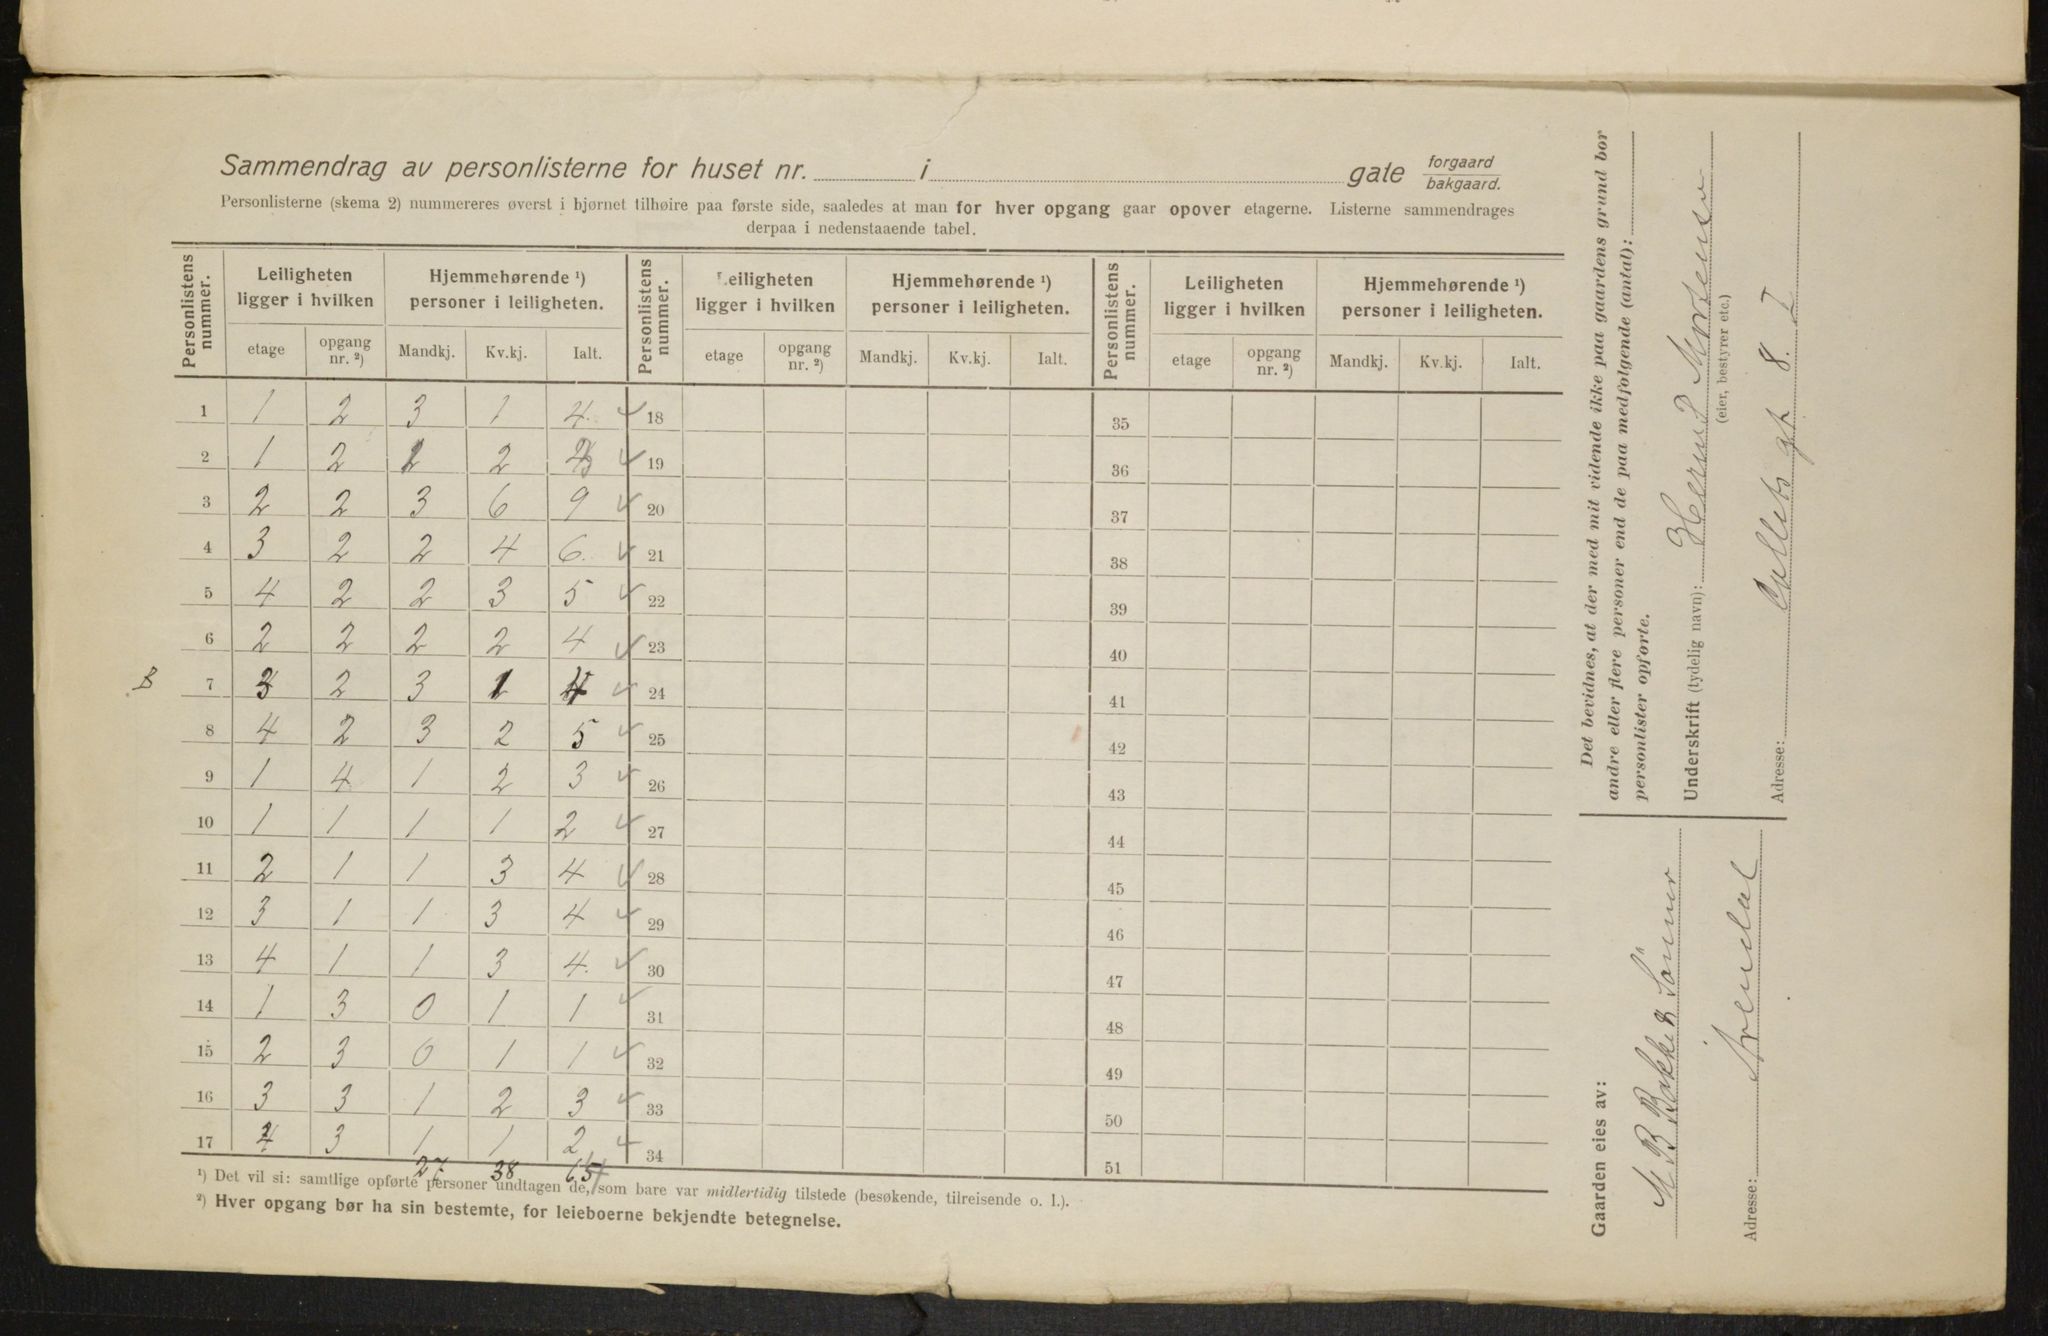 Sammendrag av personlisterne for huset nr. i gate forgaard
bakgaard.
Personlisterne (skema 2) nummereres øverst i hjørnet tilhøire paa første side, saaledes at man for hver opgang gaar opover etagerne. Listerne sammendrages
derpaa i nedenstaaende tabel.
Personlistens nummer. Leiligheten ligger i hvilken Hjemmehørende ¹) personer i leiligheten. Personlistens nummer. Leiligheten ligger i hvilken Hjemmehørende ¹) personer i leiligheten. Personlistens nummer. Leiligheten ligger i hvilken Hjemmehørende ¹) personer i leiligheten.
etage opgang nr. ²) Mandkj. Kv.kj. Ialt. etage opgang nr. ²) Mandkj. Kv.kj. Ialt. etage opgang nr. ²) Mandkj. Kv.kj. Ialt.
1 1 2 3 1 4. 18 35
2 1 2 1 2 3 19 36
3 2 2 3 6 9 20 37
4 3 2 2 4 6. 21 38
5 4 2 2 3 5 22 39
6 2 2 2 2 4 23 40
7 3 2 3 1 4 24 41
8 4 2 3 2 5 25 42
9 1 4 1 2 3 26 43
10 1 1 1 1 2 27 44
11 2 1 1 3 4 28 45
12 3 1 1 3 4 29 46
13 4 1 1 3 4. 30 47
14 1 3 0 1 1 31 48
15 2 3 0 1 1 32 49
16 3 3 1 2 3 33 50
17 4 3 1 1 2 34 51
27 38
¹) Det vil si: samtlige opførte personer undtagen de, som bare var midlertidig tilstede (besøkende, tilreisende o. l.).
²) Hver opgang bør ha sin bestemte, for leieboerne bekjendte betegnelse.
Det bevidnes, at der med mit vidende ikke paa gaardens grund bor
andre eller flere personer end de paa medfølgende (antal):
personlister opførte.
Underskrift (tydelig navn): Mortensen
(eier, bestyrer etc.)
Adresse: Collets gt 8. I
Gaarden eies av:
M B Bakke & Sönner
Adresse: Arendal